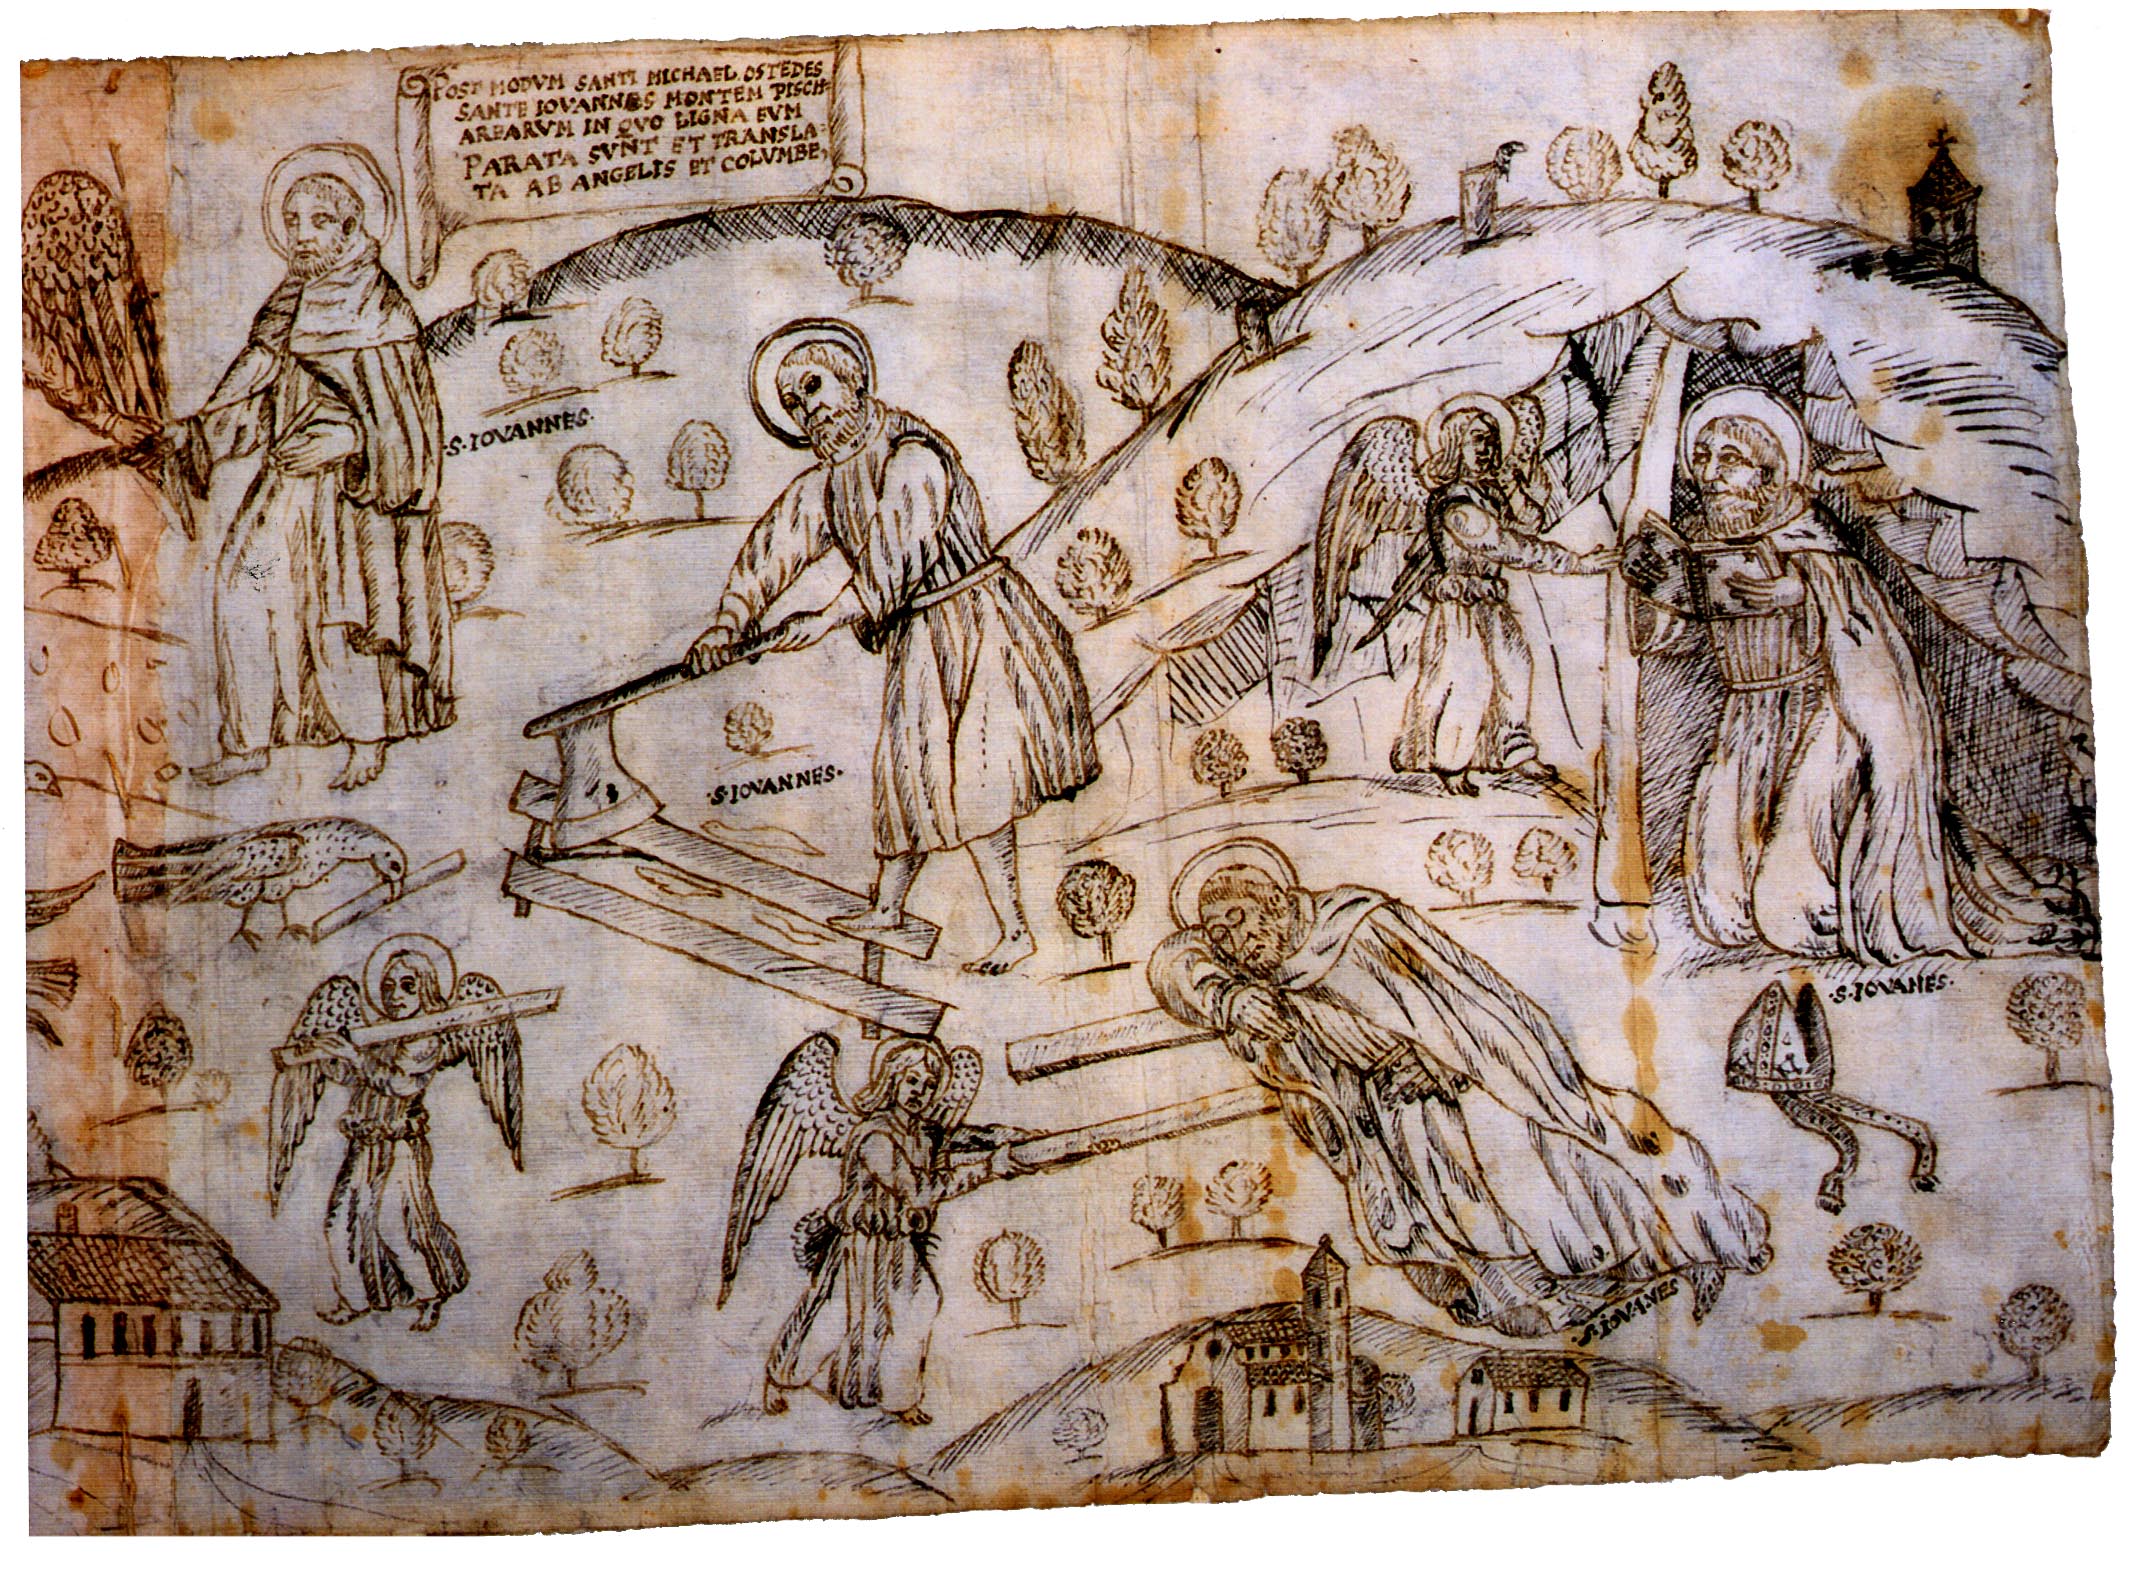 POST MODVM SANTI MICHAEL OSTEDES
SANTE IOVANNES MONTEM PISCH-
AREARVM IN QVO LIGNA EVM
PARATA SVNT ET TRANSLA=
TA AB ANGELIS ET COLVMBE,
·S·IOVANNES·
·S·IOVANNES·
·S·IOVANES·
·S·IOVANES